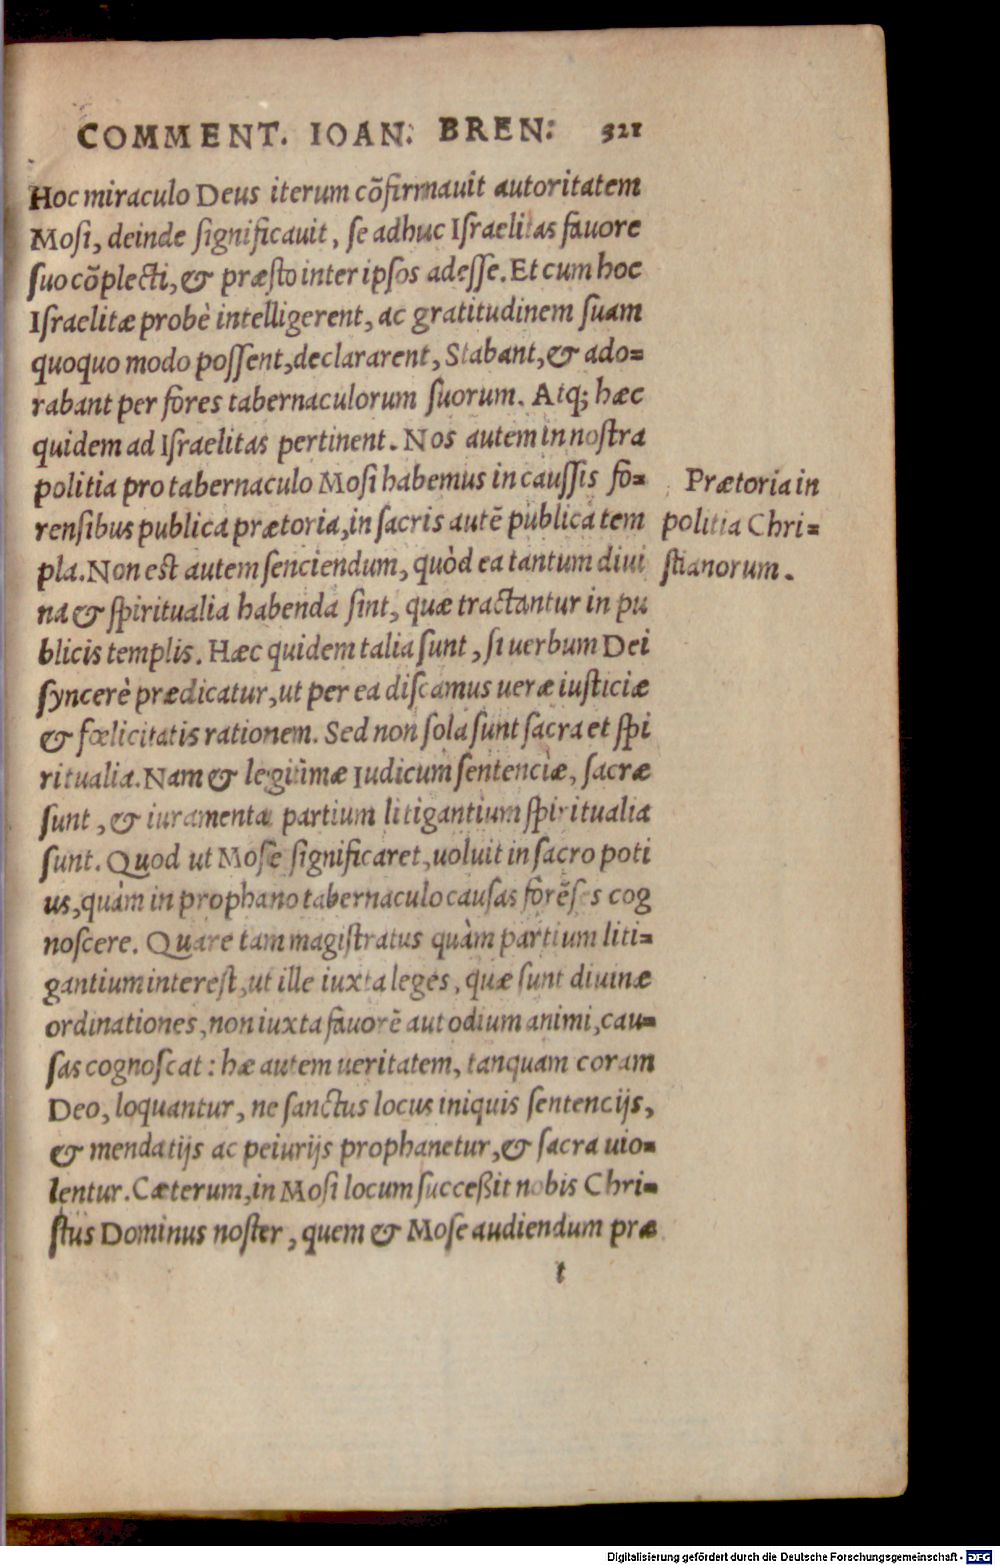 COMMENT. IOAN. BREN. 321
Hoc miraculo Deus iterum cõfirmauit autoritatem
Mosi, deinde significauit, se adhuc Israelitas fauore
suo cõplecti, & præsto inter ipsos adesse. Et cum hoc
Israelitæ probè intelligerent, ac gratitudinem suam
quoquo modo possent, declararent, Stabant, & ado=
rabant per fores tabernaculorum suorum. Atq; hæc
quidem ad Israelitas pertinent. Nos autem in nostra
politia pro tabernaculo Mosi habemus in caussis fo=
rensibus publica prætoria, in sacris autē publica tem
pla. Non est autem senciendum, quòd ea tantum diui
na & spiritualia habenda sint, quæ tractantur in pu
blicis templis. Hæc quidem talia sunt, si uerbum Dei
syncerè prædicatur, ut per ea discamus ueræ iusticiæ
& fœlicitatis rationem. Sed non sola sunt sacra et spi
ritualia. Nam & legitimæ Iudicum sentenciæ, sacræ
sunt, & iuramenta partium litigantium spiritualia
sunt. Quod ut Mose significaret, uoluit in sacro poti
us, quàm in prophano tabernaculo causas forēses cog
noscere. Quare tam magistratus quàm partium liti=
gantium interest, ut ille iuxta leges, quæ sunt diuinæ
ordinationes, non iuxta fauorē aut odium animi, cau=
sas cognoscat: hæ autem ueritatem, tanquam coram
Deo, loquantur, ne sanctus locus iniquis sentencijs,
& mendatijs ac peiurijs prophanetur, & sacra uio=
lentur. Cæterum, in Mosi locum succeßit nobis Chri=
stus Dominus noster, quem & Mose audiendum præ
t
Prætoria in
politia Chri=
stianorum.
Digitalisierung gefördert durch die Deutsche Forschungsgemeinschaft - DFG